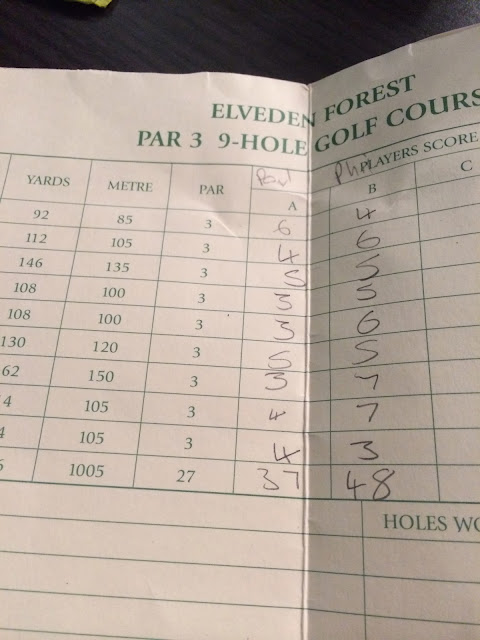 ELVEDEN FOREST
PAR 3 9-HOLE GOLF COURS
Paul Phi PLAYERS SCORE
YARDS METRE PAR A B C
92 85 3 6 4
112 105 3 4 6
146 135 3 5 5
108 100 3 3 5
108 100 3 3 6
130 120 3 5 5
62 150 3 3 7
4 105 3 4 7
4 105 3 4 3
1005 27 37 48
HOLES WO